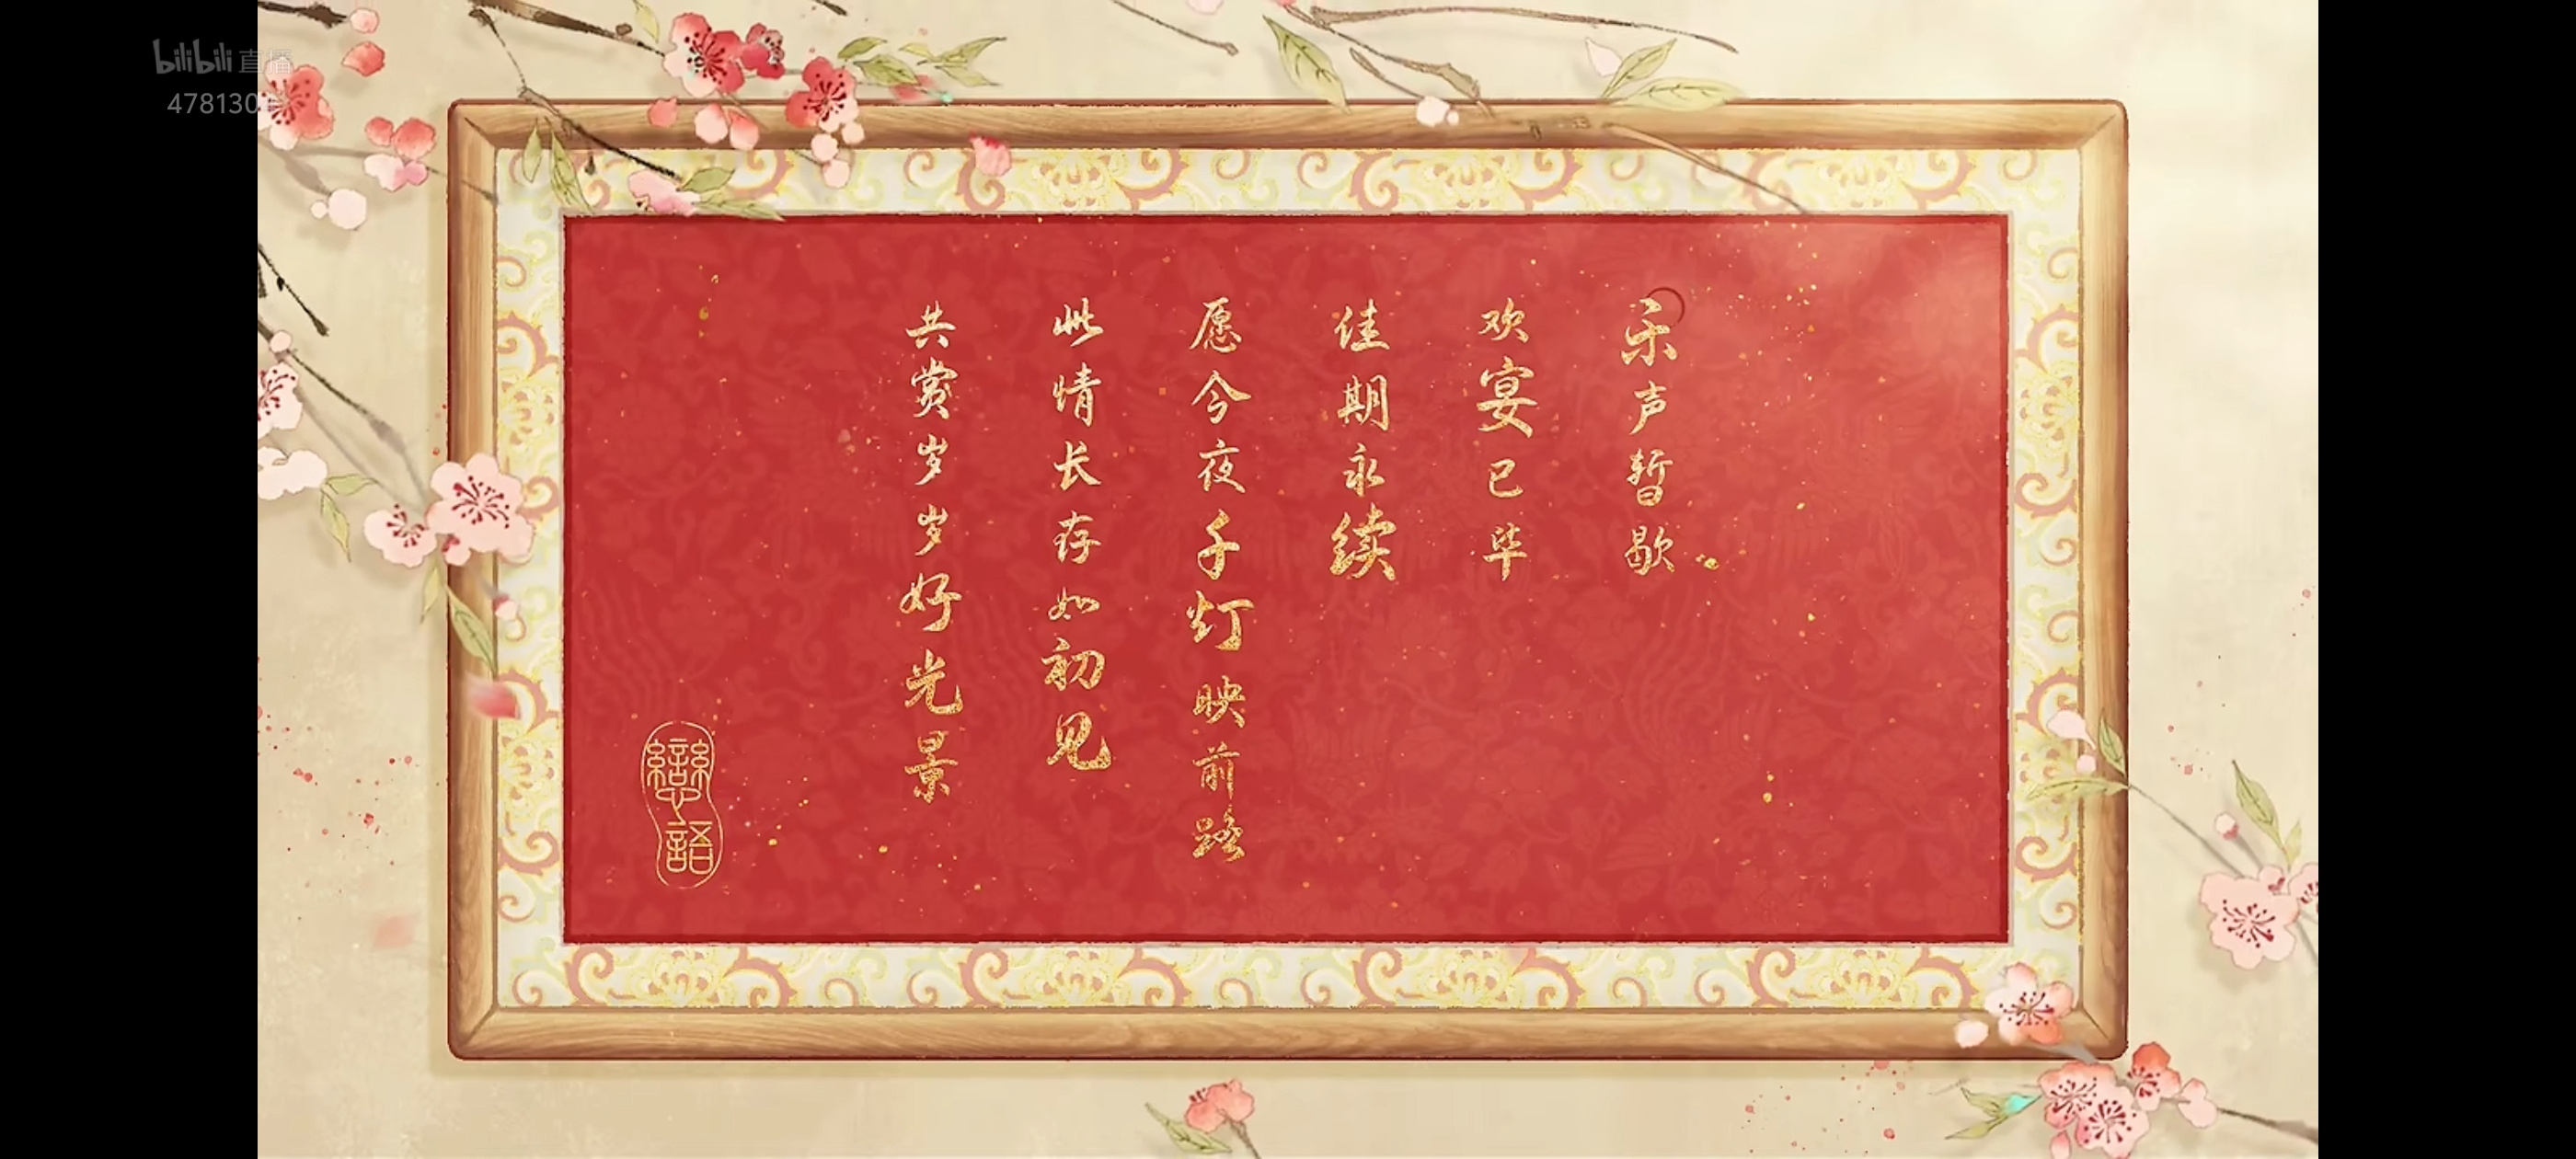 bilibili 直播
478130
乐声暂歇
欢宴已毕
佳期永续
愿今夜千灯映前路
此情长存如初见
共赏岁岁好光景
戀語